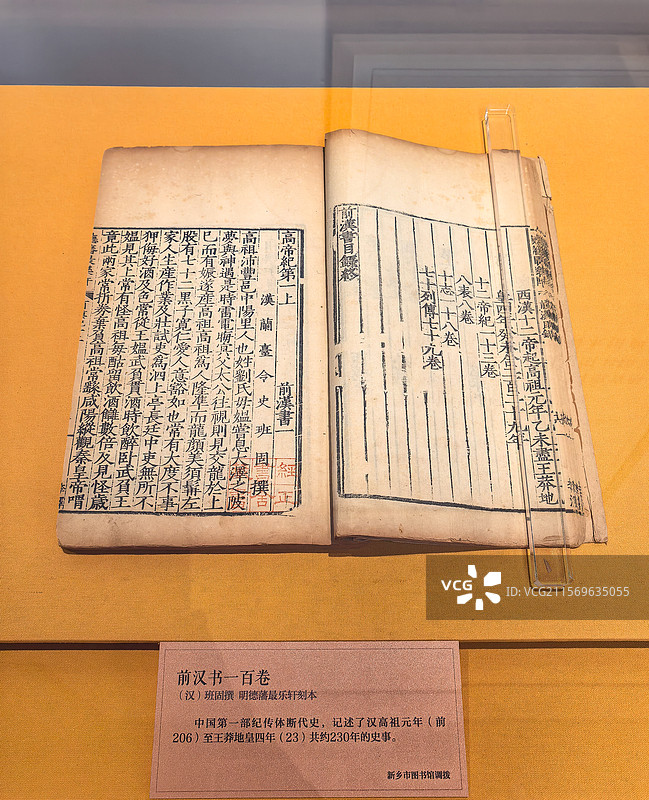 西漢十二帝起高祖元年乙未盡王莽地
皇四年癸未合二百二十九年
十二帝紀一十三卷
八表八卷
十志一十八卷
七十列傳七十九卷
前漢書目録終
高帝紀第一上 前漢書一
漢蘭臺令史班固撰
高祖沛豐邑中陽里人也姓劉氏母媼嘗息大澤之陂
夢與神遇是時雷電晦冥父太公往視則見交龍於上
已而有娠遂産高祖高祖爲人隆準而龍顏美須髯左
股有七十二黑子寬仁愛人意豁如也常有大度不事
家人生産作業及壯試吏爲泗上亭長廷中吏無所不
狎侮好酒及色常從王媼武負貰酒時飲醉卧武負王
媼見其上常有怪高祖每酤留飲酒讎數倍及見怪歲
竟此兩家常折券棄負高祖常繇咸陽縱觀秦皇帝喟
經正
VCG ID: VCG211569635055
前汉书一百卷
（汉）班固撰 明德藩最乐轩刻本
中国第一部纪传体断代史，记述了汉高祖元年（前
206）至王莽地皇四年（23）共约230年的史事。
新乡市图书馆调拨